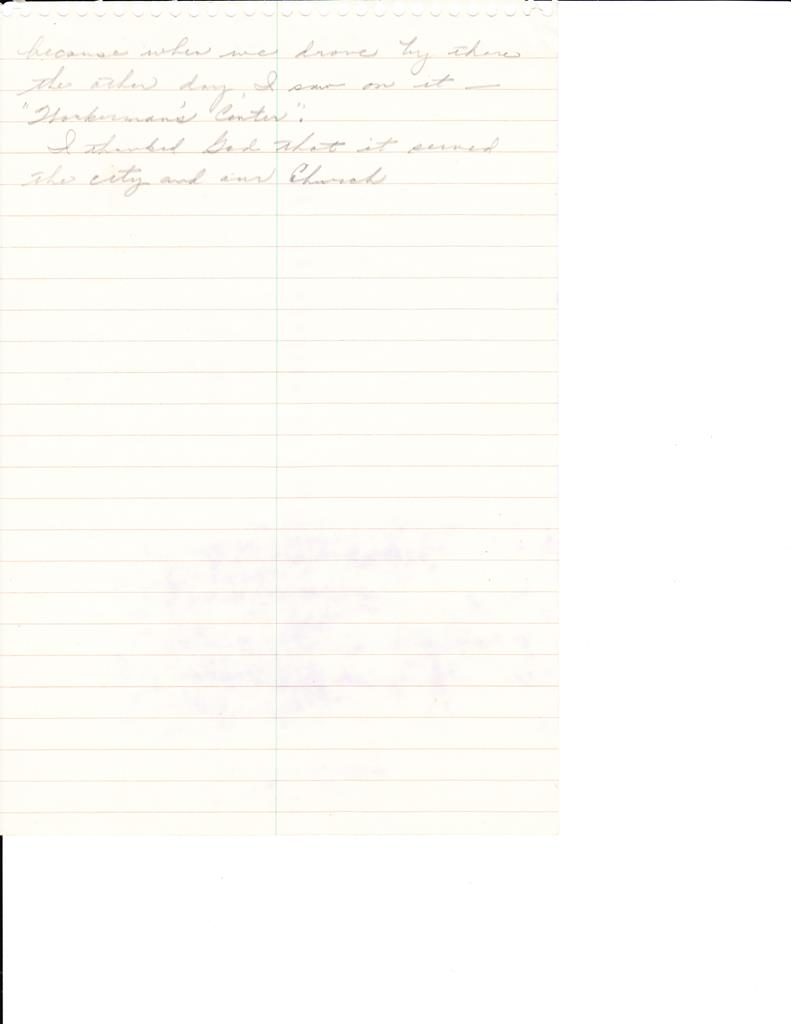 because when we drove by there
the other day, I saw on it —
"Workerman's Center".
I thanked God that it served
the city and our Church